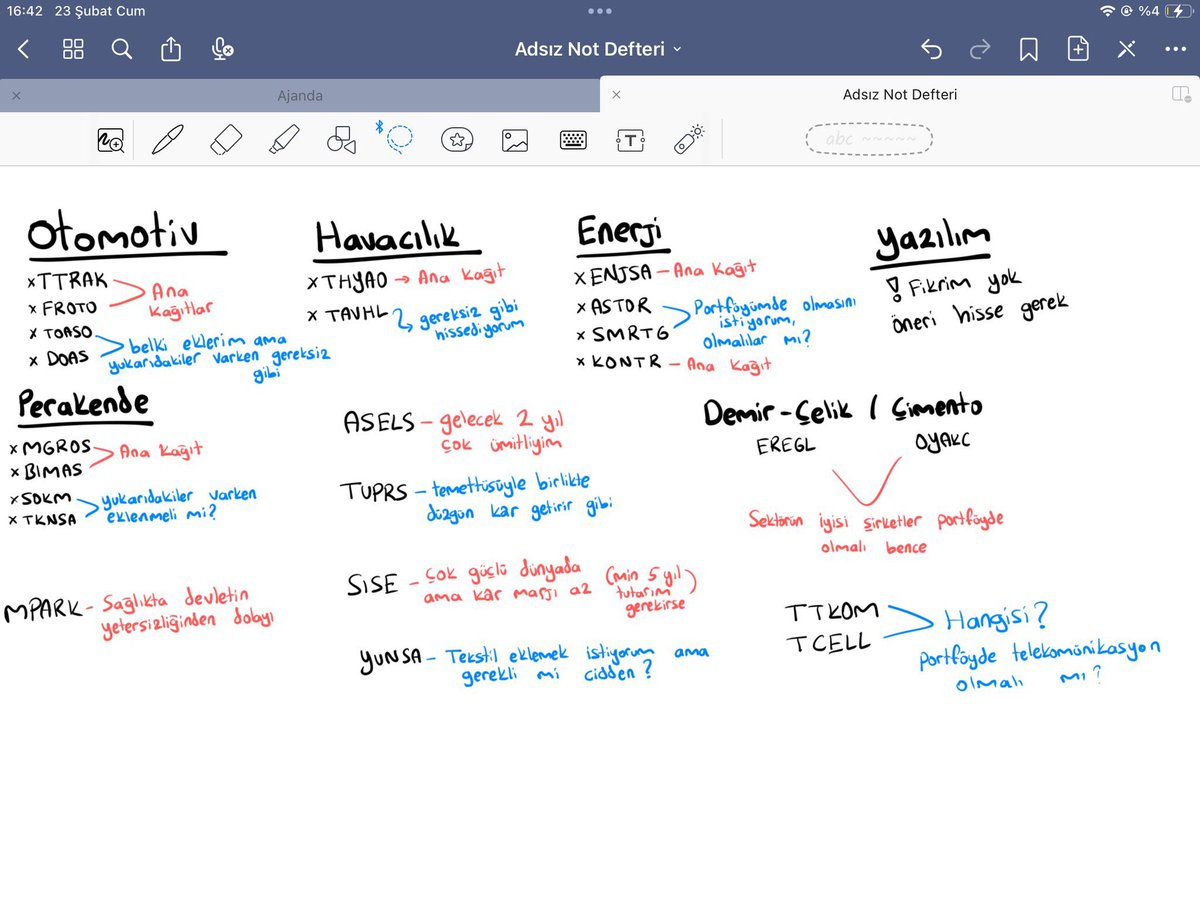 16:42 23 Şubat Cum
%4
Adsız Not Defteri
Ajanda
Adsız Not Defteri
abc
Otomotiv
x TTRAK
x FROTO
Ana
kağıtlar
x TOASO
x DOAS
belki eklerim ama
yukarıdakiler varken gereksiz
gibi
Havacılık
x THYAO → Ana kağıt
x TAVHL
gereksiz gibi
hissediyorum
Enerji
x ENJSA - Ana kağıt
x ASTOR
x SMRTG
Portföyümde olmasını
istiyorum,
olmalılar mı?
x KONTR - Ana kağıt
Yazılım
! Fikrim yok
öneri hisse gerek
Perakende
x MGROS
x BIMAS
Ana kağıt
x SOKM
x TKNSA
yukarıdakiler varken
eklenmeli mi?
ASELS - gelecek 2 yıl
çok ümitliyim
TUPRS - temettüsüyle birlikte
düzgün kar getirir gibi
Demir-Çelik / Çimento
EREGL
OYAKC
Sektörün iyisi şirketler portföyde
olmalı bence
MPARK - Sağlıkta devletin
yetersizliğinden dolayı
SISE - Çok güçlü dünyada
ama kâr marjı az
(min 5 yıl
tutarım
gerekirse)
YUNSA - Tekstil eklemek istiyorum ama
gerekli mi cidden?
TTKOM
TCELL
Hangisi?
Portföyde telekomünikasyon
olmalı mı?